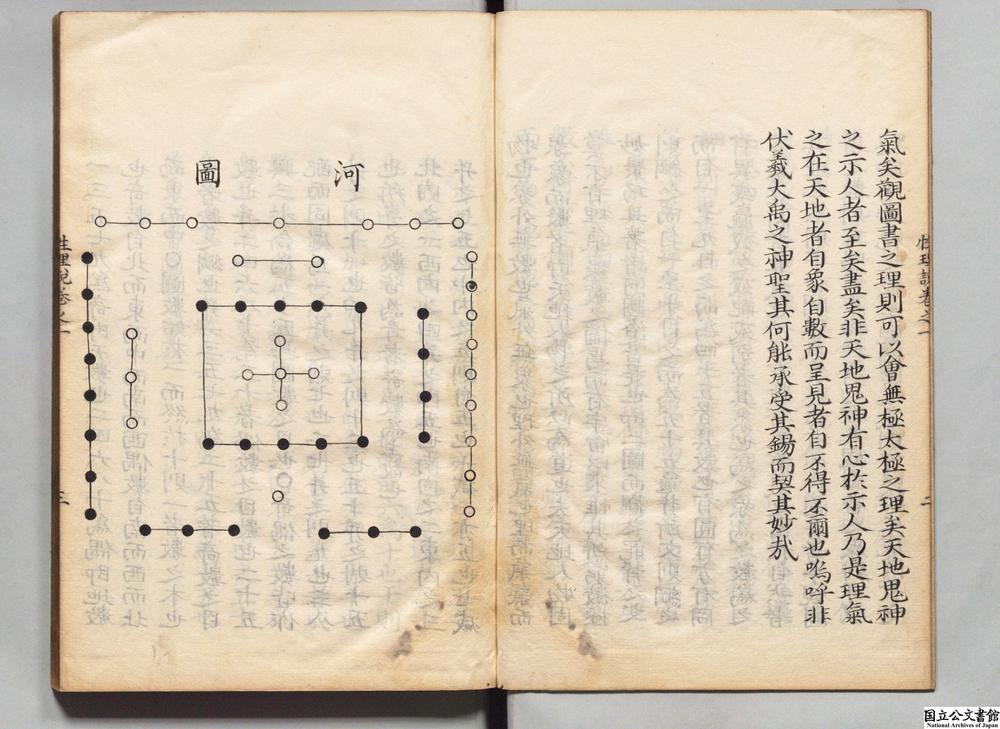 氣矣觀圖書之理則可以會無極太極之理矣天地鬼神
之示人者至矣盡矣非天地鬼神有心於示人乃是理氣
之在天地者自象自數而呈見者自不得不爾也嗚呼非
伏羲大禹之神聖其何能承受其錫而契其妙哉
性理說卷之一
二
河圖
性理說卷之一
三
国立公文書館
National Archives of Japan